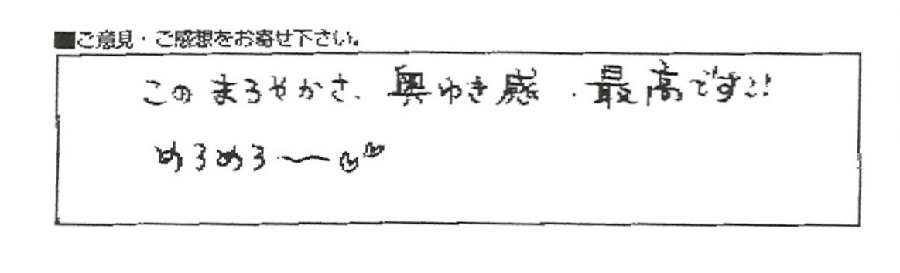 ■ご意見・ご感想をお寄せ下さい。
このまろやかさ、奥ゆき感、最高です!!
めろめろ〜♡♡